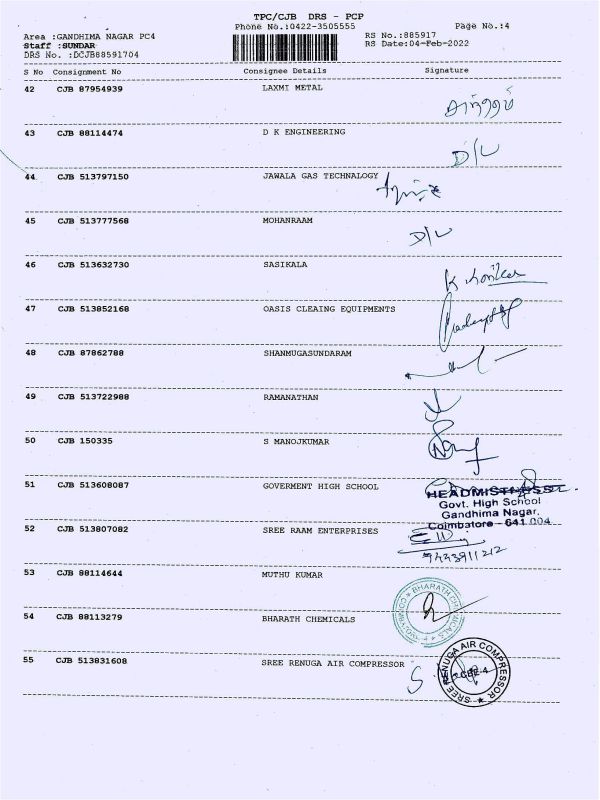 TPC/CJB DRS - PCP
Phone No.:0422-3505555
Page No.:4
Area :GANDHIMA NAGAR PC4
RS No.:885917
Staff :SUNDAR
RS Date:04-Feb-2022
DRS No. :DCJB88591704
S No Consignment No Consignee Details Signature
42 CJB 87954939 LAXMI METAL
43 CJB 88114474 D K ENGINEERING
D/L
44 CJB 513797150 JAWALA GAS TECHNALOGY
45 CJB 513777568 MOHANRAAM
D/L
46 CJB 513632730 SASIKALA
47 CJB 513852168 OASIS CLEAING EQUIPMENTS
48 CJB 87862788 SHANMUGASUNDARAM
49 CJB 513722988 RAMANATHAN
50 CJB 150335 S MANOJKUMAR
51 CJB 513608087 GOVERMENT HIGH SCHOOL
HEADMISTRESS
Govt. High School
Gandhima Nagar,
Coimbatore - 641 004
52 CJB 513807082 SREE RAAM ENTERPRISES
53 CJB 88114644 MUTHU KUMAR
54 CJB 88113279 BHARATH CHEMICALS
BHARATH CHEMICALS
55 CJB 513831608 SREE RENUGA AIR COMPRESSOR
SREE RENUGA AIR COMPRESSOR
CBE-4